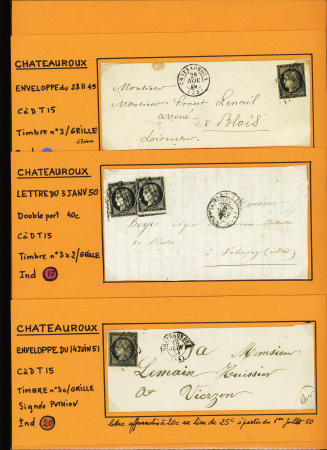 CHATEAUROUX
ENVELOPPE du 28 11 49
CàD T15
Timbre n°3/GRILLE
27mm
Ind
CHATEAUROUX
28
NOV.
49
Monsieur
Monsieur Ernest
à Blois
Loir et cher
CHATEAUROUX
LETTRE DU 3 JANV 50
Double port 40c
CàD T15
Timbre n°3x2/GRILLE
Ind 17
Monsieur
à Valençay (indre)
CHATEAUROUX
ENVELOPPE DU 14 JUIN 51
CàD T15
TIMBRE n°3c/GRILLE
Signée POTHION
Ind 20
CHATEAUROUX
à Monsieur
Lemain Huissier
à Vierzon
lettre affranchie à 20c au lieu de 25c à partir du 1er juillet 50